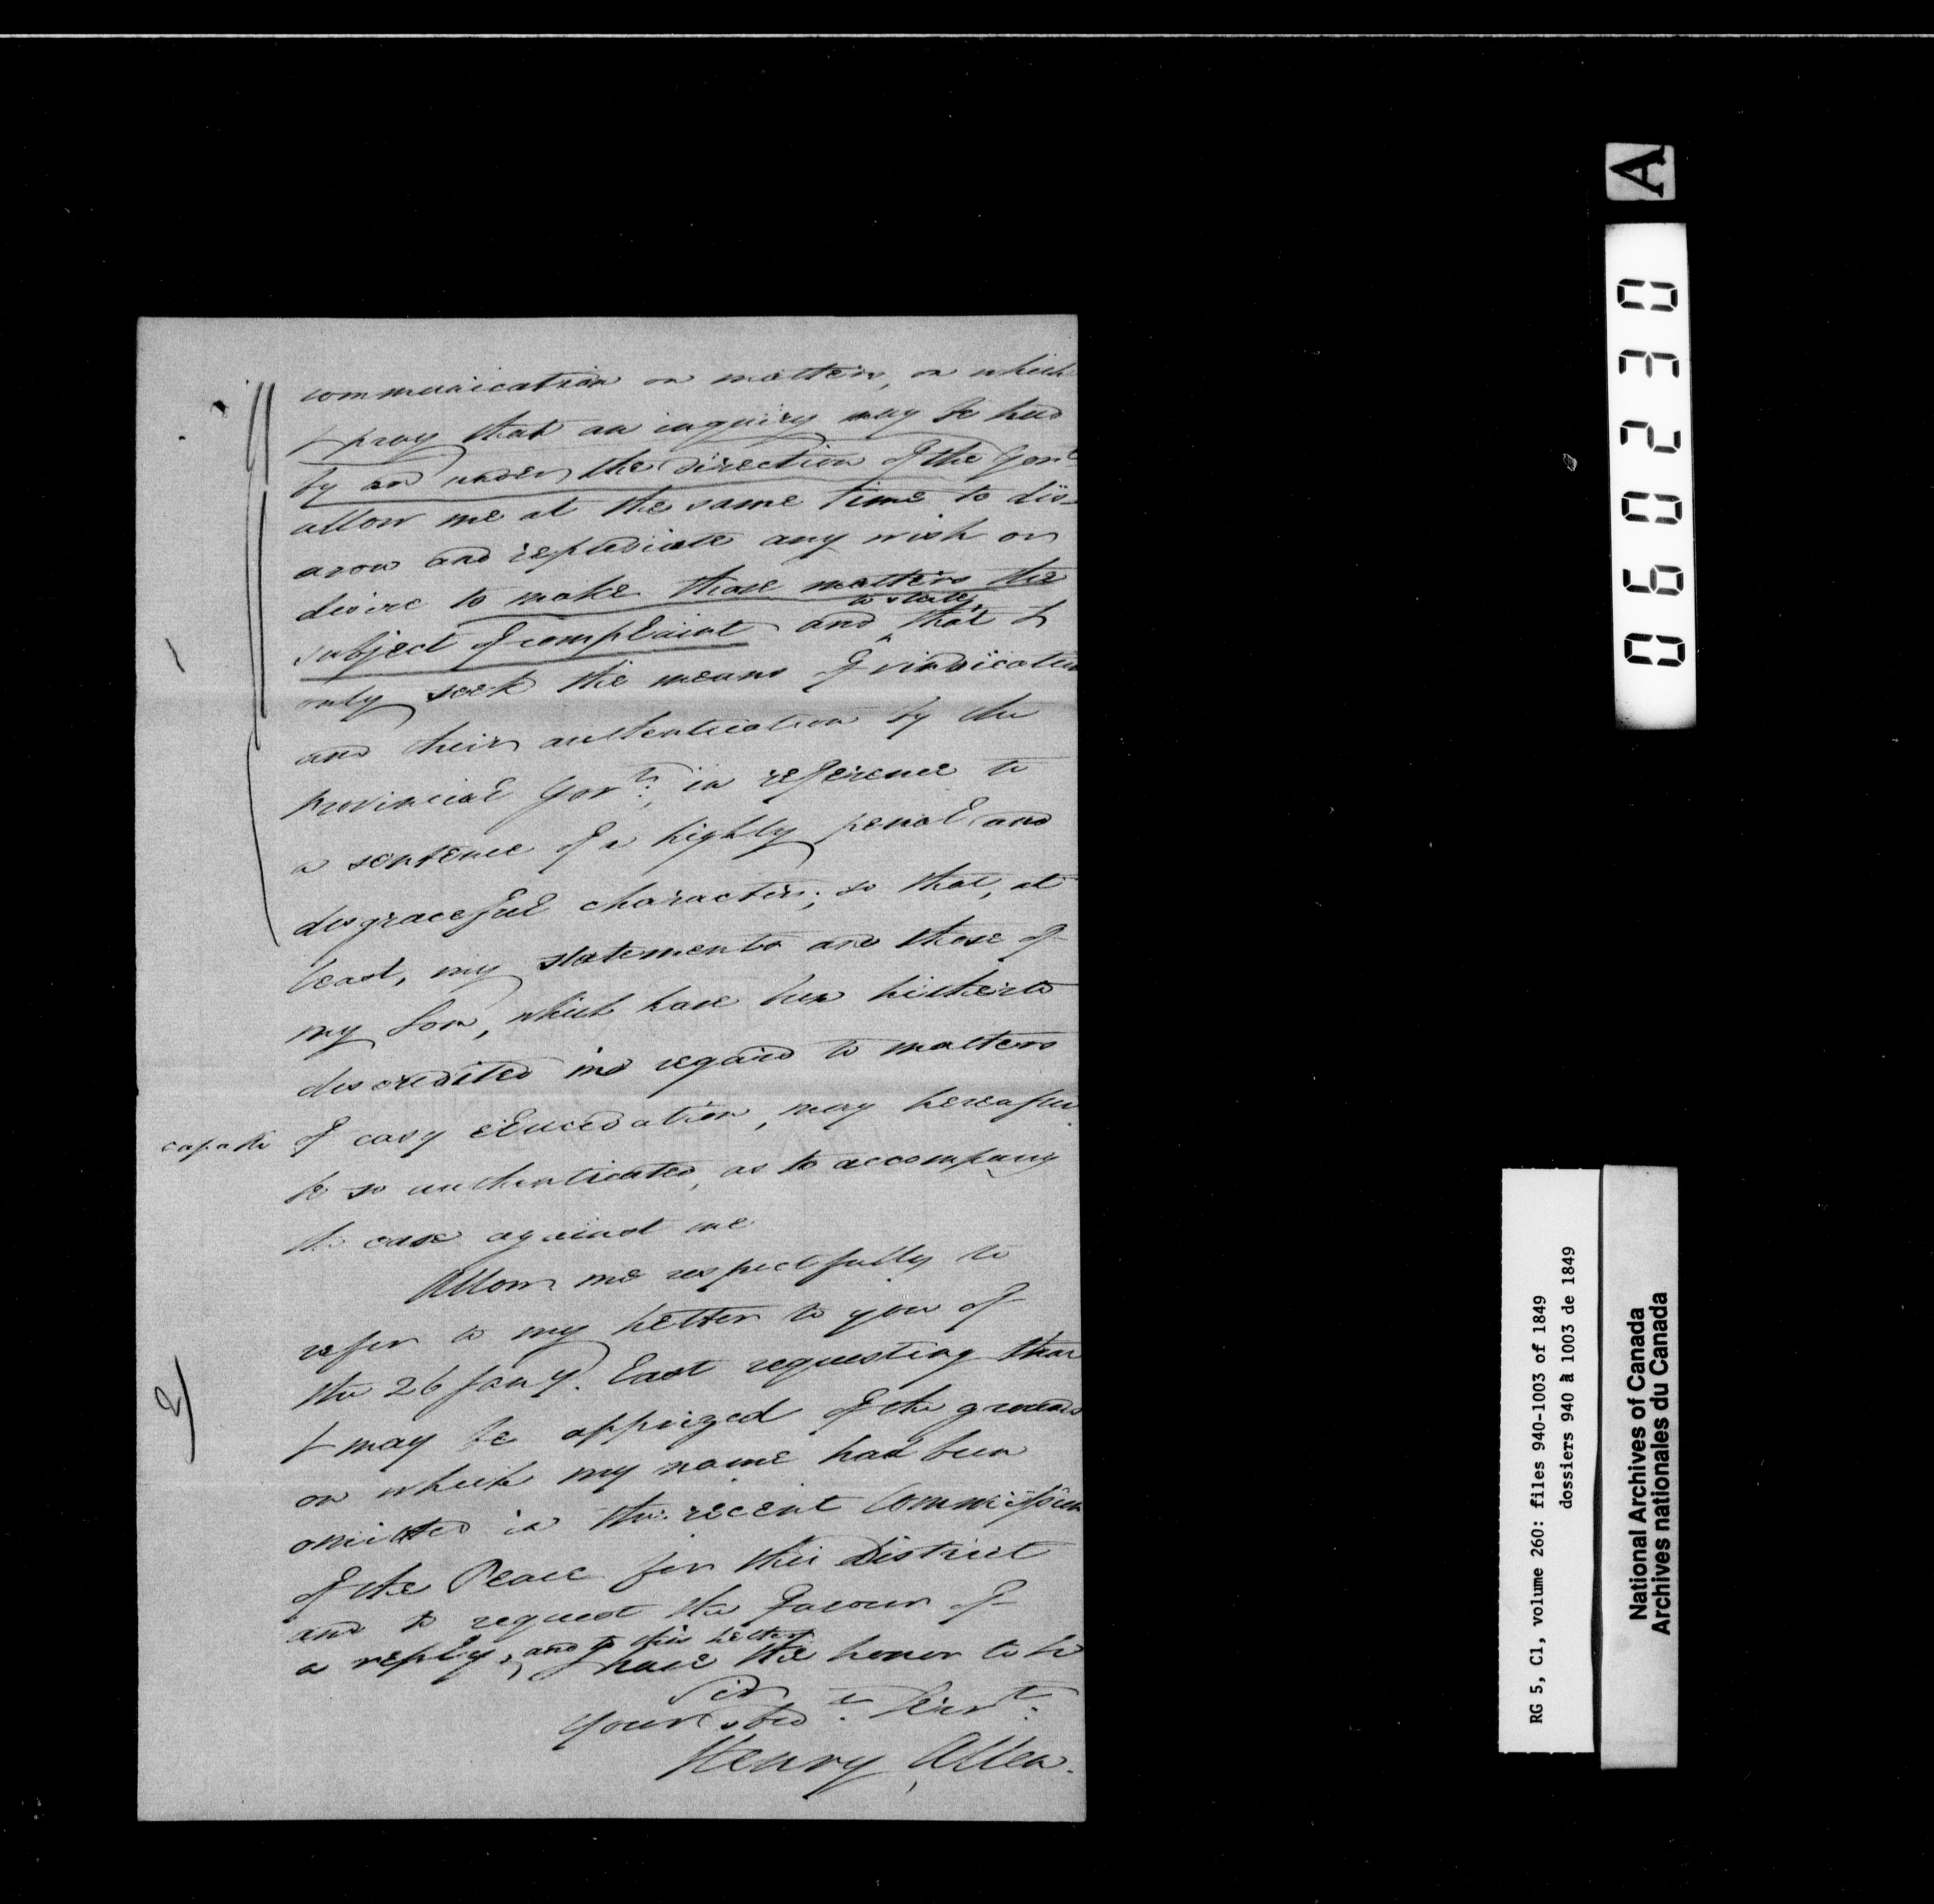 communication on matters, on which
I pray that an inquiry may be had
by and under the direction of the Govt
allow me at the same time to dis-
avow and repudiate any wish or
desire to make those matters the
subject of complaint and to state, that I
only seek the means of vindication
and their authentication by the
provincial Govt:, in reference to
a sentence of a highly penal and
disgraceful character; so that, at
least, my statements and those of
my Son, which have been hitherto
discredited in regard to matters
capable of easy elucidation, may hereafter
be so authenticated, as to accompany
the case against me
Allow me respectfully to
refer to my letter to you of
the 26 Jany. last requesting that
I may be apprized of the grounds
on which my name had been
omitted in the recent Commission
of the Peace for this District
and to request the favour of
a reply, and to this letter, I have the honor to be
Sir
Your obedt: Servt:
Henry Allen.
1
2
A
060230
RG 5, C1, volume 260: files 940-1003 of 1849
dossiers 940 à 1003 de 1849
National Archives of Canada
Archives nationales du Canada